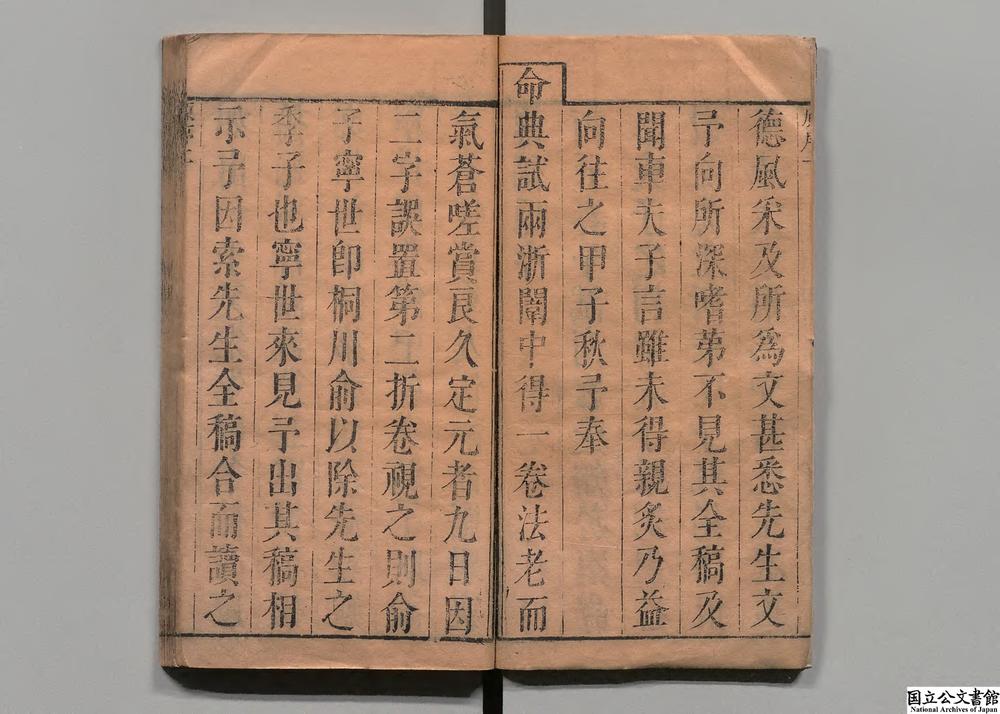 德風采及所為文甚悉先生文
予向所深嗜第不見其全稿及
聞車夫子言雖未得親炙乃益
向往之甲子秋予奉
命典試兩浙闈中得一卷法老而
氣蒼嗟賞良久定元者九日因
二字誤置第二折卷視之則俞
子寧世卽桐川俞以除先生之
季子也寧世來見予出其稿相
示予因索先生全稿合而讀之
国立公文書館
National Archives of Japan